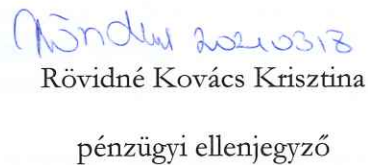 20210318
Rövidné Kovács Krisztina
pénzügyi ellenjegyző